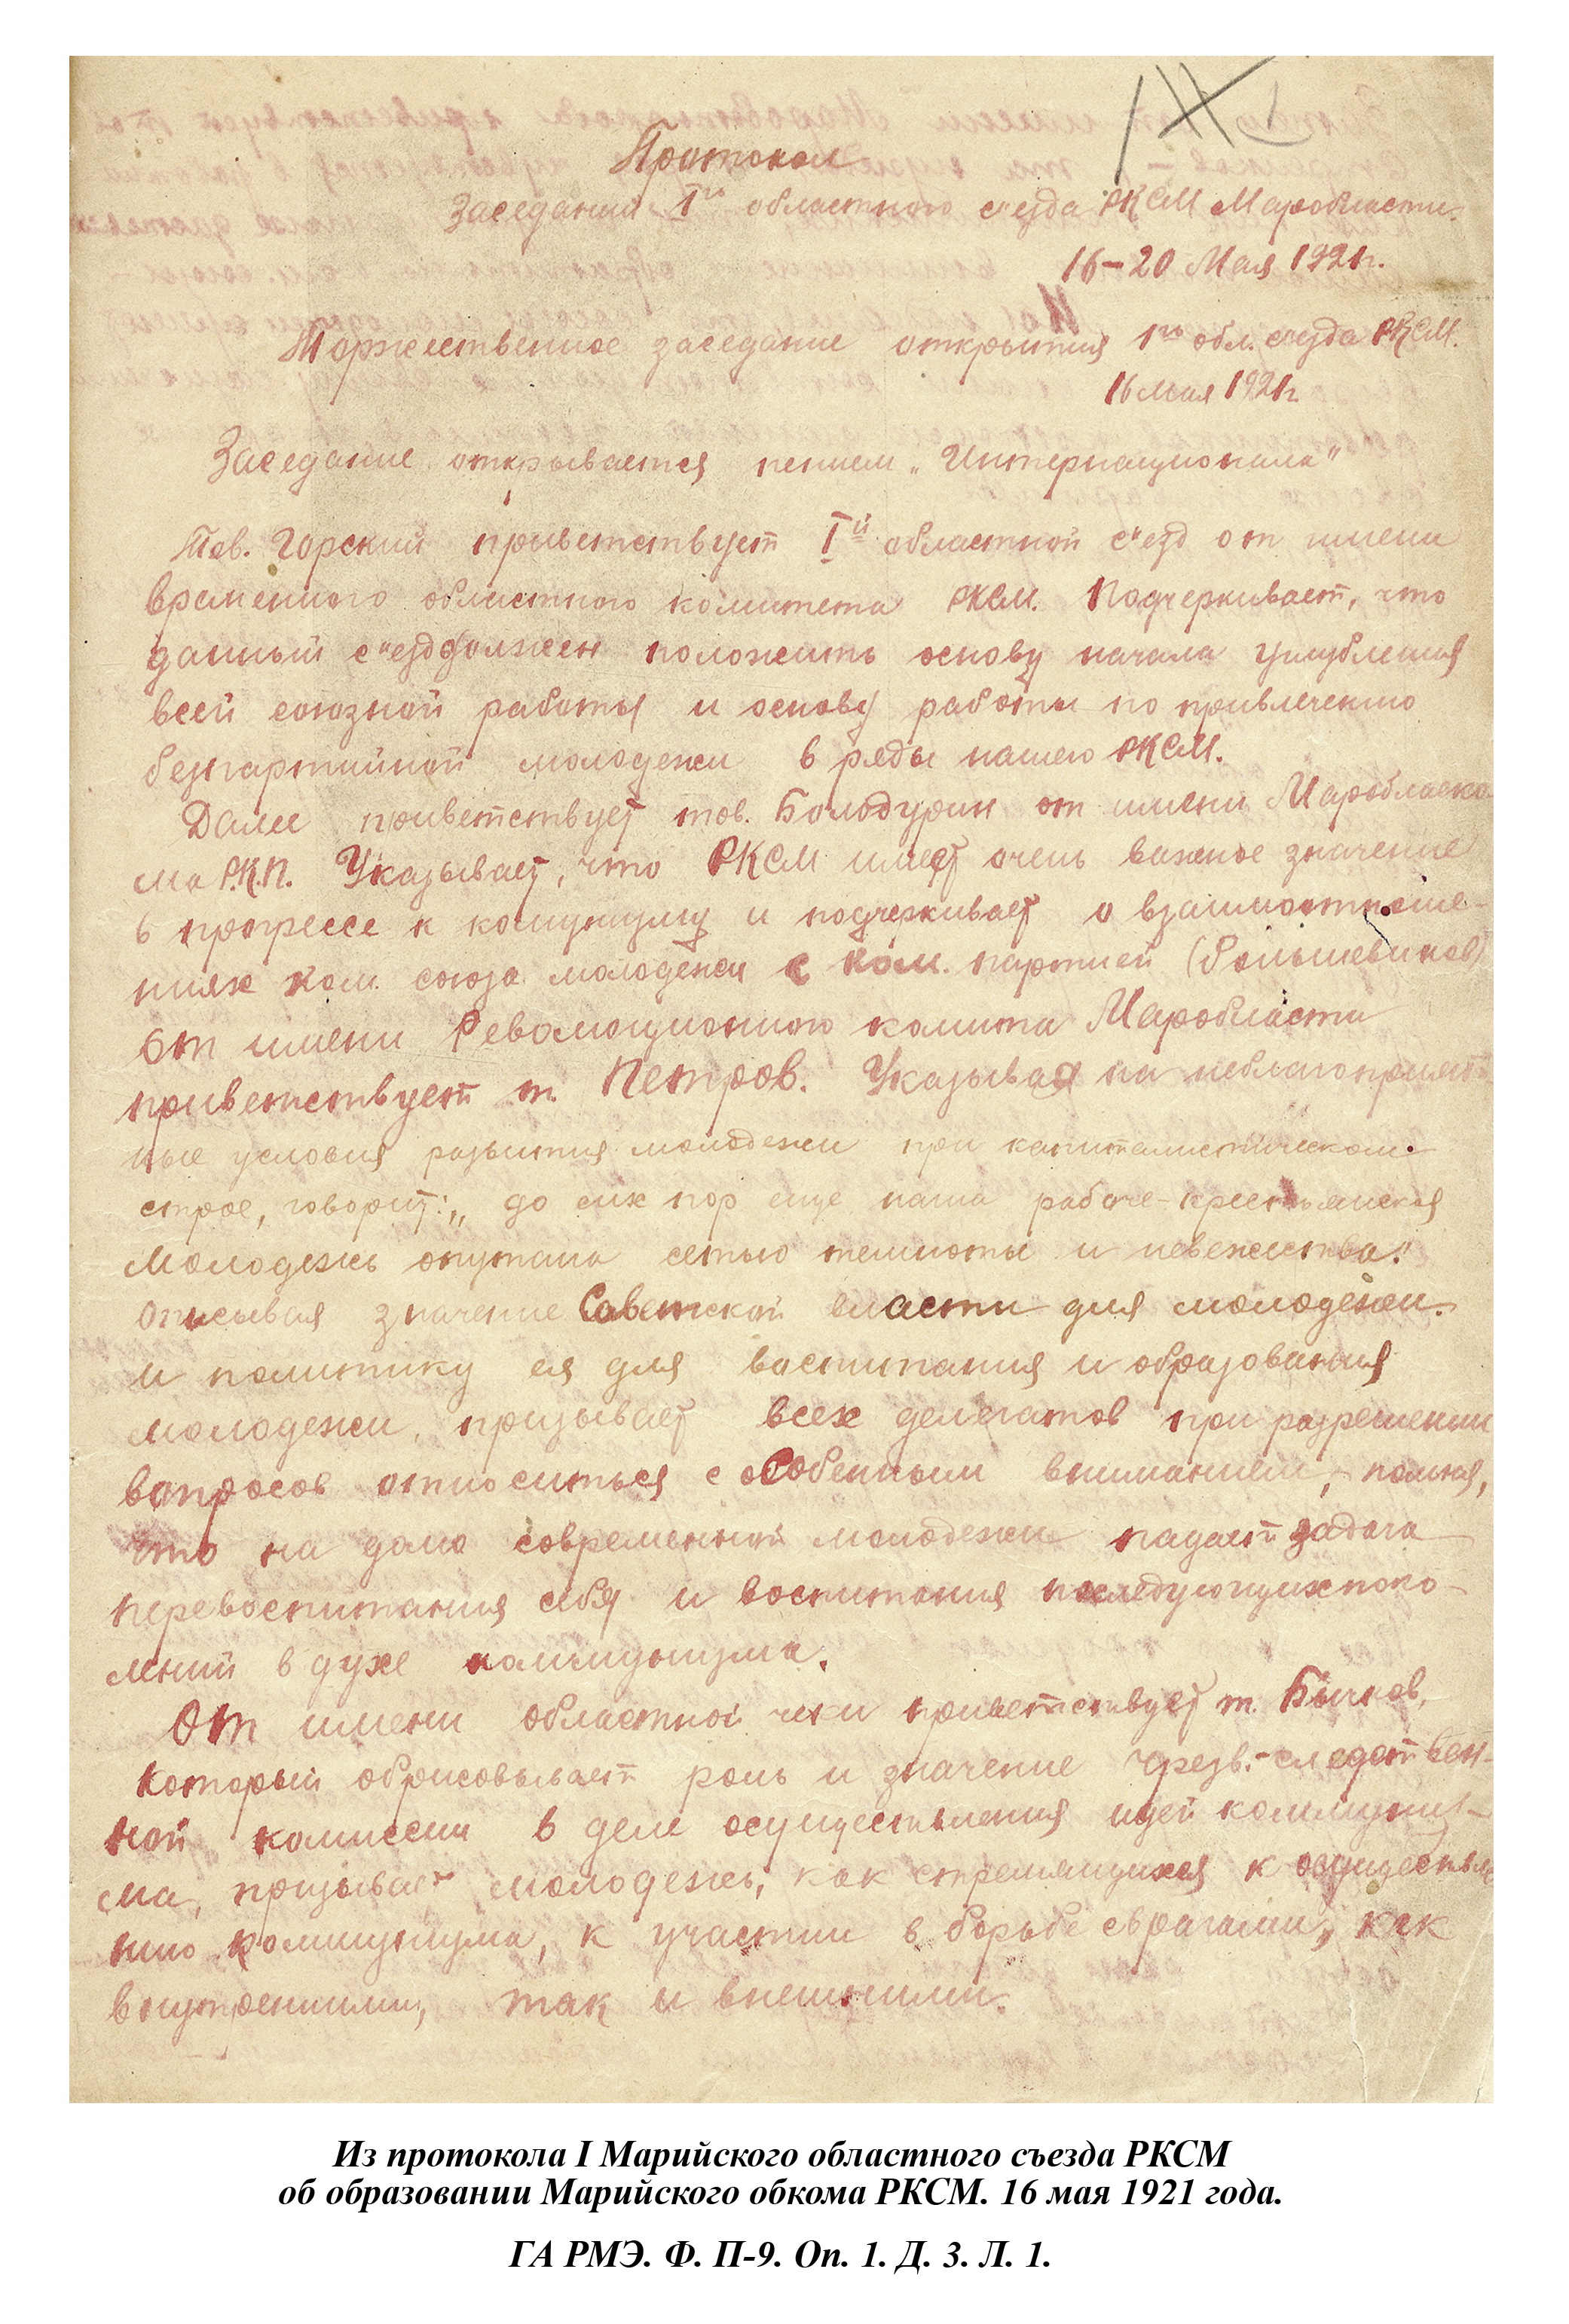 Протокол
Заседания I го областного с'езда РКСМ Маробласти.
16-20 Мая 1921г.
Торжественное заседание открытия 1го обл. с'езда РКСМ.
16 мая 1921г.
Заседание открывается пением „Интернационала"
Тов. Горский приветствует Iй областной с'езд от имени
временного областного комитета РКСМ. Подчеркивает, что
данный с'езд должен положить основу начала углубления
всей союзной работы и основу работы по привлечению
безпартийной молодежи в ряды нашего РКСМ.
Далее приветствует тов. Болодурин от имени Маробласко-
ма Р.К.П. Указывает, что РКСМ имеет очень важное значение
в прогрессе к комунизму и подчеркивает о взаимоотноше-
ниях ком. союза молодежи с ком. партией (большевиков)
От имени Революционного комита Маробласти
приветствует т. Петров. Указывая на неблагоприят-
ные условия развития молодежи при капиталистическом
строе, говорит: „до сих пор еще наша рабоче-крестьянская
молодежь опутана сетью темноты и невежества!
Описывая значение Советской власти для молодежи
и политику ея для воспитания и образования
молодежи, призывает всех делегатов при разрешении
вопросов относиться с особенным вниманием, помня,
что на долю современной молодежи падает задача
перевоспитания себя и воспитания последующих поко-
лений в духе коммунизма.
От имени областной чеки приветствует т. Бычков,
который обрисовывает роль и значение чрезв.-следствен-
ной комиссии в деле осуществления идей коммуниз-
ма, призывает молодежь, как стремящихся к осуществле
нию коммунизма, к участии в борьбе с врагами, как
внутренними, так и внешними.
Из протокола I Марийского областного съезда РКСМ
об образовании Марийского обкома РКСМ. 16 мая 1921 года.
ГА РМЭ. Ф. П-9. Оп. 1. Д. 3. Л. 1.